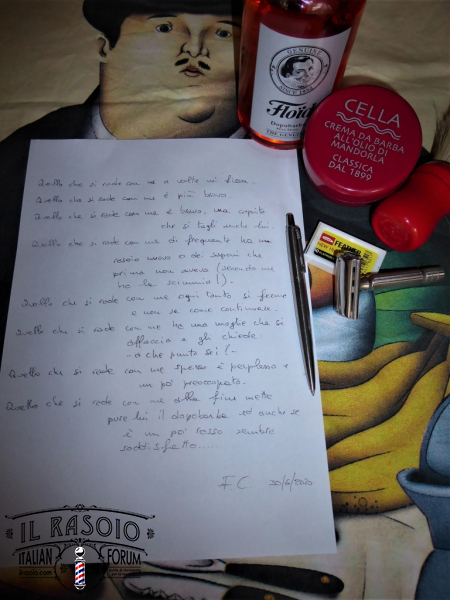 GENUINE
SINCE
Floïd
Dopobarba
THE GENUINE
CELLA
CREMA DA BARBA
ALL'OLIO DI
MANDORLA
CLASSICA
DAL 1899
FEATHER
Quello che si rade con me a volte mi frena.
Quello che si rade con me è più bravo.
Quello che si rade con me è bravo, ma capita
che si tagli anche lui.
Quello che si rade con me di frequente ha un
rasoio nuovo o dei saponi che
prima non aveva (secondo me
ha la scimmia!).
Quello che si rade con me ogni tanto si ferma
e non sa come continuare.
Quello che si rade con me ha una moglie che si
affaccia e gli chiede:
- a che punto sei? -
Quello che si rade con me spesso è perplesso e
un po' preoccupato.
Quello che si rade con me alla fine mette
pure lui il dopobarba ed anche se
è un po' rosso sembra
soddisfatto......
F.C 30/6/2020
IL RASOIO
ITALIAN FORUM